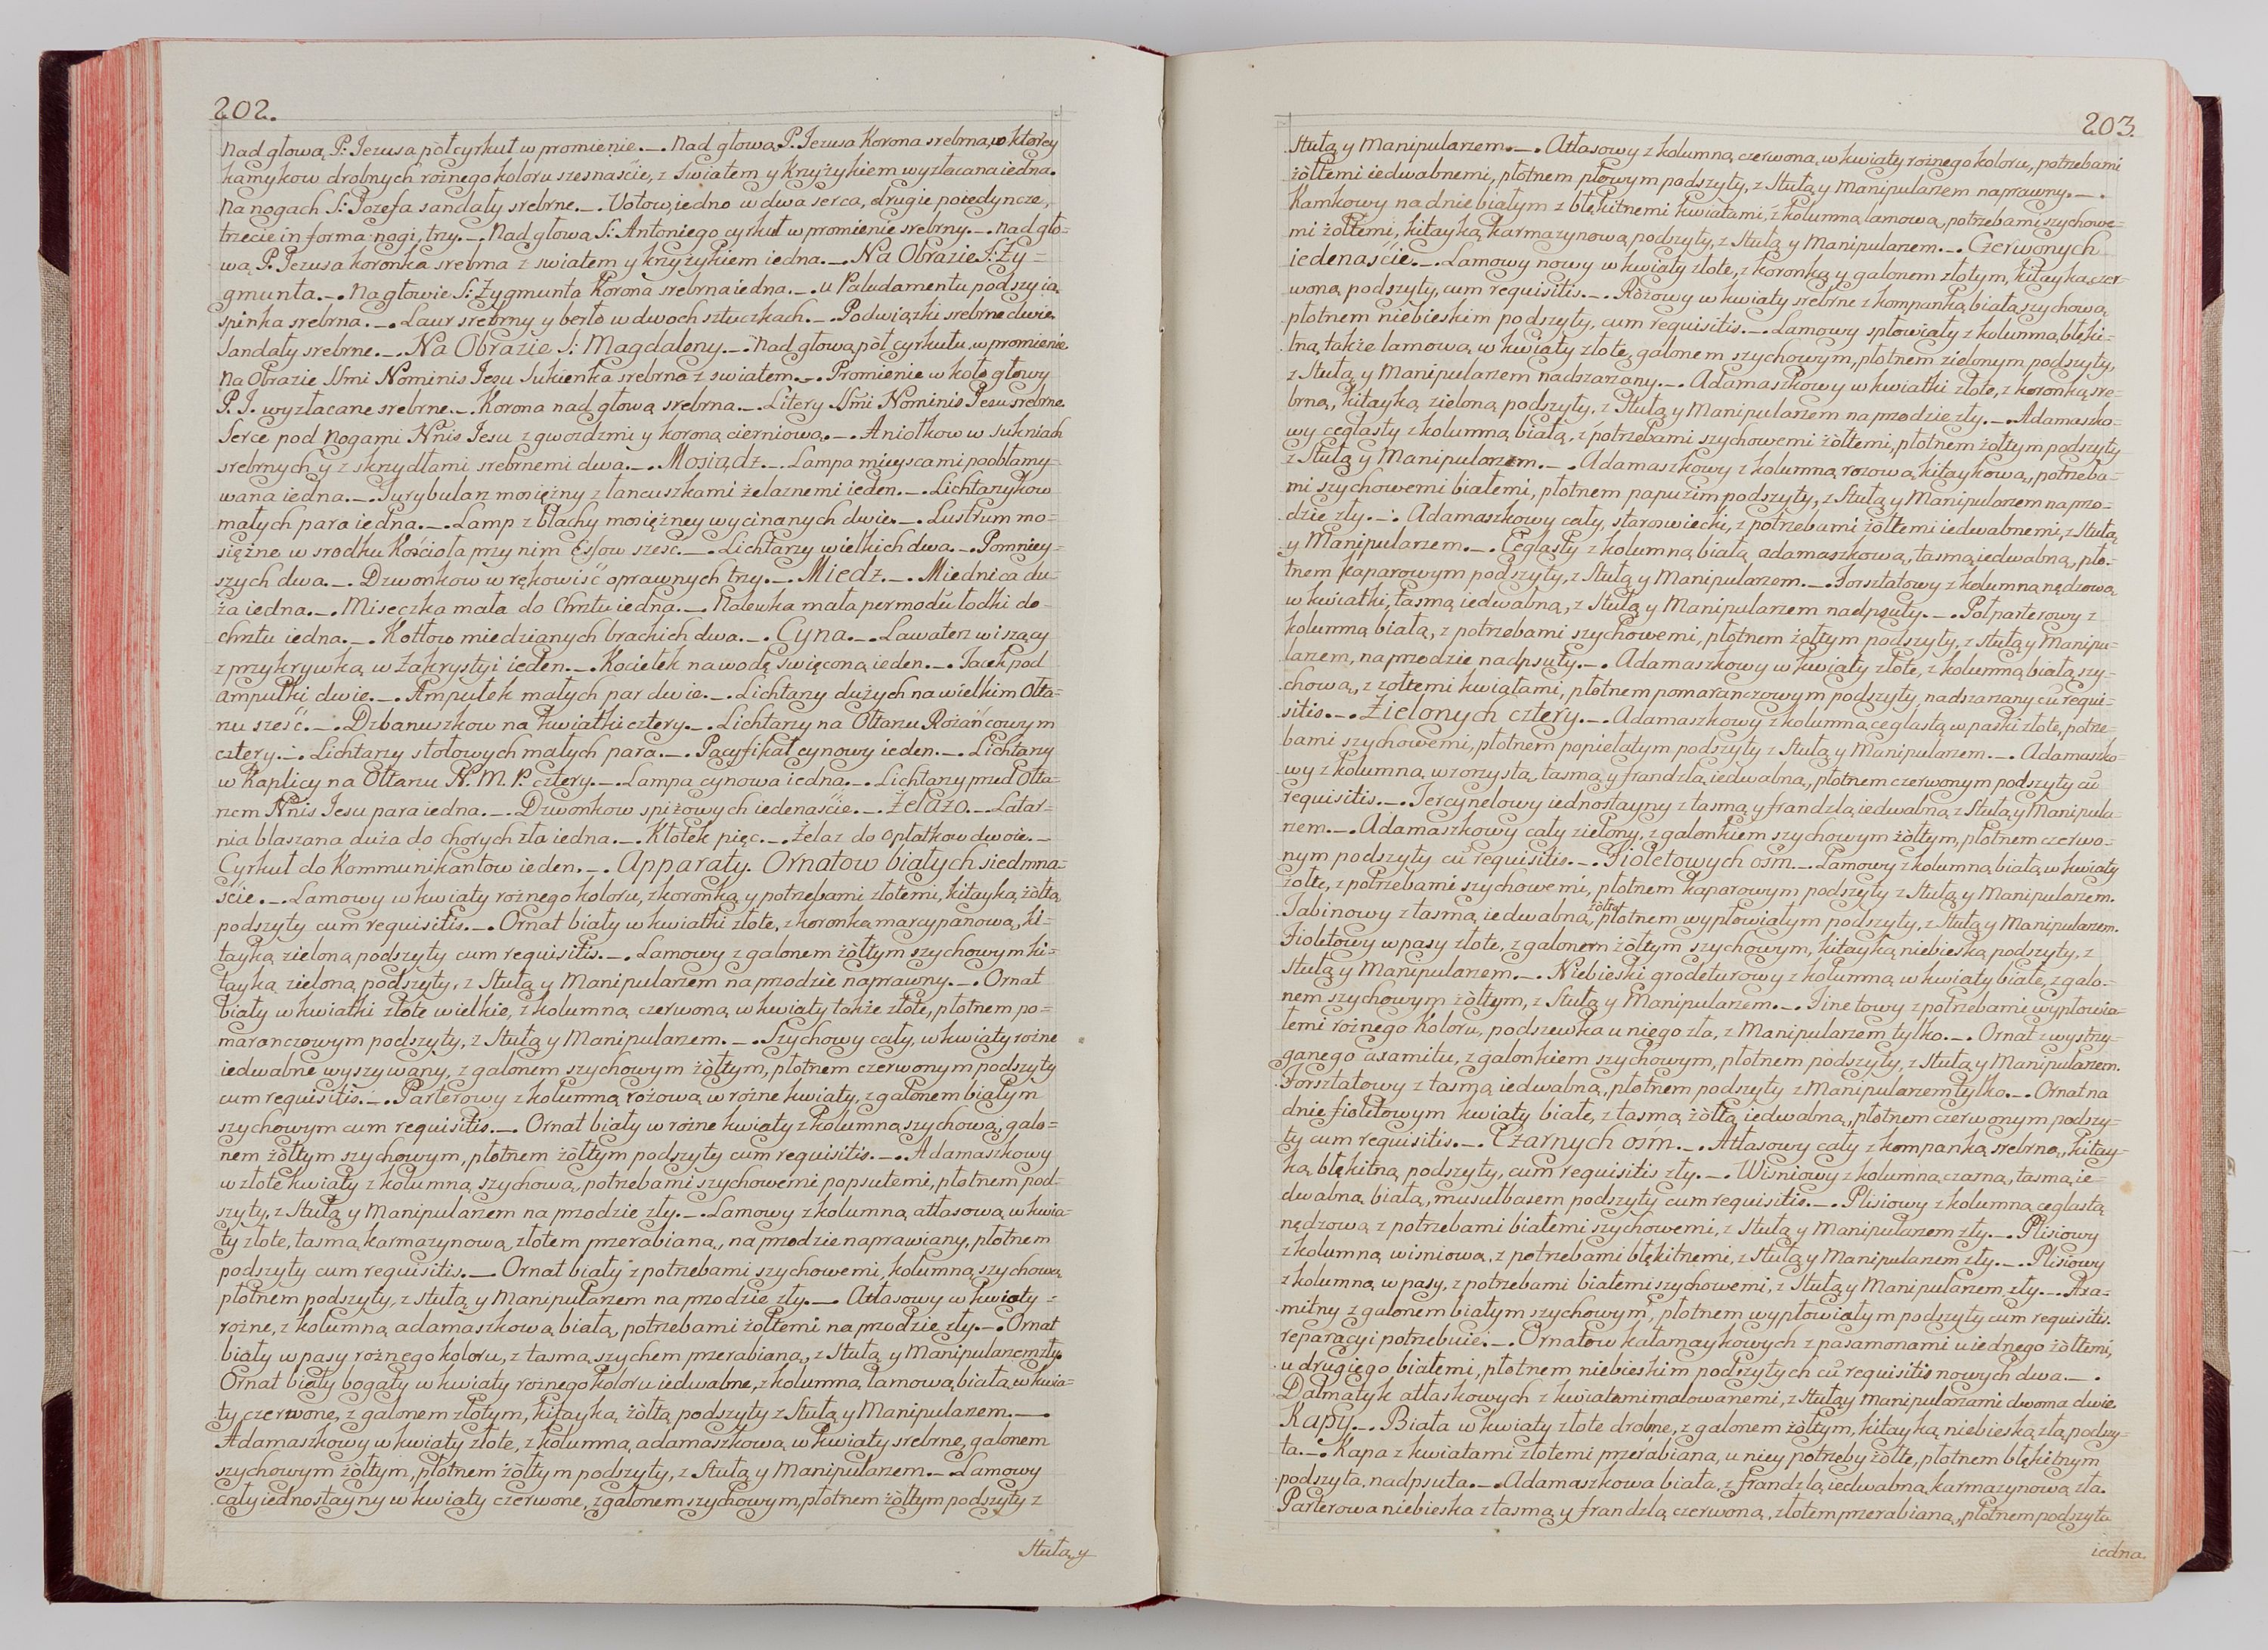 202.
nad głową P: Jezusa pòł cyrkuł w promienie._. nad głową P. Jezusa Korona srebrna, w ktorey
kamykow drobnych rożnego koloru szesnaście, z Swiatem y Krzyżykiem wyzłacana iedna.
na nogach S: Jozefa sandały srebrne._. Votow, iedno w dwa serca, drugie poiedyncze,
trzecie in forma nogi, trzy._. Nad głową S: Antoniego cyrkuł w promienie srebrny._. nad gło=
wą P. Jezusa koronka srebrna z swiatem y krzyżykiem iedna._. Na Obrazie S: Zy=
gmunta._. Na głowie S: Zygmunta Korona srebrna iedna._. u Paludamentu pod szyią
spinka srebrna._. Laur srebrny y berło w dwoch sztuczkach._. Podwiązki srebrne dwie.
Sandały srebrne._. Na Obrazie S: Magdaleny._. Nad głową pòł cyrkułu, w promienie
na Obrazie SSmi Nominis Jesu Sukienka srebrna z swiatem._. Promienie w koło głowy
P. J. wyzłacane srebrne._. Korona nad głową srebrna._. Litery SSmi Nominis Jesu srebrne.
Serce pod nogami Nnis Jesu z gwozdzmi y koroną cierniową._. Aniołkow w sukniach
srebrnych y z skrzydłami srebrnemi dwa._. Mosiądz._. Lampa mieyscami poobłamy=
wana iedna._. Turybularz mosiężny z łancuszkami żelaznemi ieden._. Lichtarzykow
małych para iedna._. Lamp z blachy mosiężney wycinanych dwie._. Lustrum mo=
siężne w srodku Kościoła przy nim Essow szesc._. Lichtarzy wielkich dwa._. Pomniey=
szych dwa._. Dzwonkow w rękowiść oprawnych trzy._. Miedz._. Miednica du=
ża iedna._. Miseczka mała do Chrztu iedna._. Nalewka mała per modū łodki do
chrztu iedna._. Kotłow miedzianych brackich dwa._. Cyna._. Lawaterz wiszący
z przykrywką w Zakrystyi ieden._. Kociełek na wodę święconą ieden._. Tacek pod
ampułki dwie._. Ampułek małych par dwie._. Lichtarzy dużych na wielkim Ołta=
rzu sześć._. Dzbanuszkow na kwiatki cztery._. Lichtarzy na Ołtarzu Rożańcowym
cztery._. Lichtarzy stołowych małych para._. Pacyfikał cynowy ieden._. Lichtarzy
w Kaplicy na Ołtarzu N. M. P. cztery._. Lampa cynowa iedna._. Lichtarzy przed Ołta=
rzem Nnis Jesu para iedna._. Dzwonkow spiżowych iedenaście._. Żelazo._. Latar=
nia blaszana duża do chorych zła iedna._. Kłotek pięc._. Żelaz do opłatkow dwoie._.
Cyrkuł do Kommunikantow ieden._. Apparaty. Ornatow białych siedmna=
ście._. Lamowy w kwiaty rożnego koloru, z koronką y potrzebami złotemi, kitayką żòłtą
podszyty cum requisitis._. Ornat biały w kwiatki złote, z koronką marcypanową, ki=
tayką zieloną podszyty cum requisitis._. Lamowy z galonem żòłtym szychowym ki=
tayką zieloną podszyty, z Stułą y Manipularzem na przodzie naprawny._. Ornat
biały w kwiatki złote wielkie, z kolumną czerwoną w kwiaty także złote, płotnem po=
maranczowym podszyty, z Stułą y Manipularzem._. Szychowy cały, w kwiaty rożne
iedwabne wyszywany, z galonem szychowym żòłtym, płotnem czerwonym podszyty
cum requisitis._. Parterowy z kolumną rożową w rożne kwiaty, z galonem białym
szychowym cum requisitis._. Ornat biały w rożne kwiaty z kolumną szychową, galo=
nem żòłtym szychowym, płotnem żòłtym podszyty cum requisitis._. Adamaszkowy
w złote kwiaty z kolumną szychową, potrzebami szychowemi popsutemi, płotnem pod=
szyty, z Stułą y Manipularzem na przodzie zły._. Lamowy z kolumną atłasową w kwia=
ty złote, tasmą karmazynową, złotem przerabianą, na przodzie naprawiany, płotnem
podszyty cum requisitis._. Ornat biały z potrzebami szychowemi, kolumną szychową
płotnem podszyty, z Stułą y Manipularzem na przodzie zły._. Atłasowy w kwiaty =
rożne, z kolumną adamaszkową białą, potrzebami żòłtemi na przodzie zły._. Ornat
biały w pasy rożnego koloru, z tasmą szychem przerabianą, z Stułą y Manipularzem zły.
Ornat biały bogaty w kwiaty rożnego koloru iedwabne, z kolumną lamową białą w kwia=
ty czerwone, z galonem złotym, kitayką żòłtą podszyty z Stułą y Manipularzem._.
Adamaszkowy w kwiaty złote, z kolumną adamaszkową w kwiaty srebrne, galonem
szychowym żòłtym, płotnem żòłtym podszyty, z Stułą y Manipularzem._. Lamowy
cały iednostayny w kwiaty czerwone, z galonem szychowym, płotnem żòłtym podszyty z
Stułą y
203.
Stułą y Manipularzem._. Atłasowy z kolumną czerwoną, w kwiaty rożnego koloru, potrzebami
żòłtemi iedwabnemi, płotnem płowym podszyty, z Stułą y Manipularzem naprawny._.
Kamkowy na dnie białym z błękitnemi kwiatami, z kolumną lamową, potrzebami szychowe=
mi żòłtemi, kitayką karmazynową podszyty, z Stułą y Manipularzem._. Czerwonych
iedenaście._. Lamowy nowy w kwiaty złote, z koronką y galonem złotym, kitayką czer=
woną podszyty, cum requisitis._. Rożowy w kwiaty srebrne z kompanką białą szychową,
płotnem niebieskim podszyty, cum requisitis._. Lamowy spłowiały z kolumną błęki=
tną, także lamową w kwiaty złote, galonem szychowym, płotnem zielonym podszyty,
z Stułą y Manipularzem nadszarzany._. Adamaszkowy w kwiatki złote, z koronką sre=
brną, kitayką zieloną podszyty, z Stułą y Manipularzem na przodzie zły._. Adamaszko=
wy ceglasty z kolumną białą, z potrzebami szychowemi żòłtemi, płotnem żòłtym podszyty
z Stułą y Manipularzem._. Adamaszkowy z kolumną rozową kitaykową, potrzeba=
mi szychowemi białemi, płotnem papużim podszyty, z Stułą y Manipularzem na przo=
dzie zły._. Adamaszkowy cały, staroswiecki, z potrzebami żòłtemi iedwabnemi, z Stułą
y Manipularzem._. Ceglasty z kolumną białą adamaszkową, tasmą iedwabną, pło=
tnem kaparowym podszyty, z Stułą y Manipularzem._. Forsztatowy z kolumną nędzową
w kwiatki, tasmą iedwabną, z Stułą y Manipularzem nadpsuty._. Połparterowy z
kolumną białą, z potrzebami szychowemi, płotnem żòłtym podszyty, z stułą y Manipu=
larzem, na przodzie nadpsuty._. Adamaszkowy w kwiaty złote, z kolumną białą szy=
chową, z zołtemi kwiatami, płotnem pomaranczowym podszyty nadszarzany cū requi=
sitis._. Zielonych cztery._. Adamaszkowy z kolumną ceglastą w paski złote, potrze=
bami szychowemi, płotnem popielatym podszyty z Stułą y Manipularzem._. Adamaszko=
wy z kolumną wzorzystą, tasmą y frandzlą iedwabną, płotnem czerwonym podszyty cū
requisitis._. Tercynelowy iednostayny z tasmą y frandzlą iedwabną z Stułą y Manipula=
rzem._. Adamaszkowy cały zielony, z galonkiem szychowym żòłtym, płotnem czerwo=
nym podszyty cū requisitis._. Fioletowych ośm._. Lamowy z kolumną białą w kwiaty
żòłte, z potrzebami szychowemi, płotnem kaparowym podszyty z Stułą y Manipularzem.
Tabinowy z tasmą iedwabną, żòłtą płotnem wypłowiałym podszyty, z Stułą y Manipularzem.
Fioletowy w pasy złote, z galonem żòłtym szychowym, kitayką niebieską podszyty, z
Stułą y Manipularzem._. Niebieski grodeturowy z kolumną w kwiaty białe, z galo=
nem szychowym żòłtym, z Stułą y Manipularzem._. Tinetowy z potrzebami wypłowia=
łemi rożnego Koloru, podszewka u niego zła, z Manipularzem tylko._. Ornat z wystrzy=
ganego axamitu, z galonkiem szychowym, płotnem podszyty, z Stułą y Manipularzem.
Forsztatowy z tasmą iedwabną, płotnem podszyty z Manipularzem tylko._. Ornat na
dnie fioletowym kwiaty białe, z tasmą żòłtą iedwabną, płotnem czerwonym podszy=
ty cum requisitis._. Czarnych ośm._. Atłasowy cały z kompanką srebrną, kitay=
ką błękitną podszyty, cum requisitis zły._. Wisniowy z kolumną czarną, tasmą ie=
dwabną białą, musułbasem podszyty cum requisitis._. Plisiowy z kolumną ceglastą
nędzową z potrzebami białemi szychowemi, z Stułą y Manipularzem zły._. Plisiowy
z kolumną wisniową, z potrzebami błękitnemi, z Stułą y Manipularzem zły._. Plisiowy
z kolumną w pasy, z potrzebami białemi szychowemi, z Stułą y Manipularzem zły._. Axa=
mitny z galonem białym szychowym, płotnem wypłowiałym podszyty cum requisitis.
reparacyi potrzebuie._. Ornatow kałamaykowych z pasamonami u iednego żòłtemi,
u drugiego białemi, płotnem niebieskim podszytych cū requisitis nowych dwa._.
Dalmatyk atłaskowych z kwiatami malowanemi, z Stułą y Manipularzami dwoma dwie.
Kapy._. Biała w kwiaty złote drobne, z galonem żòłtym, kitayką niebieską złą podszy=
ta._. Kapa z kwiatami złotemi przerabiana, u niey potrzeby żòłte, płotnem błękitnym
podszyta, nadpsuta._. Adamaszkowa biała, z frandzlą iedwabną karmazynową zła.
Parterowa niebieska z tasmą y frandzlą czerwoną, złotem przerabianą, płotnem podszyta
iedna.